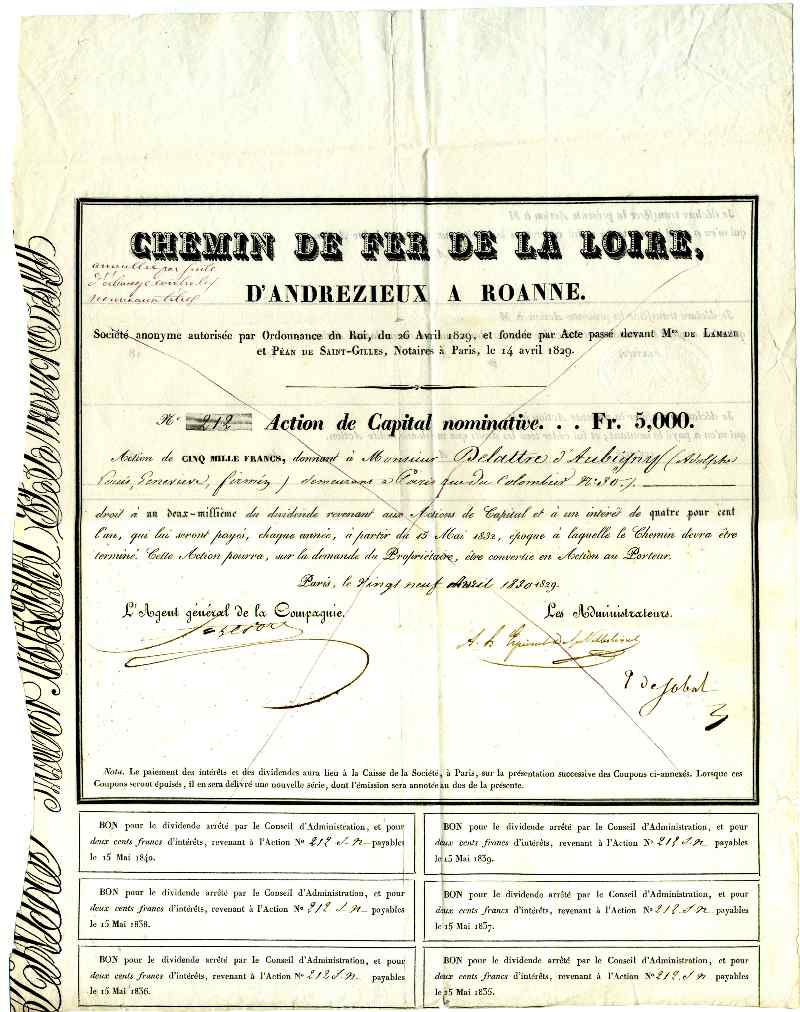 CHEMIN DE FER DE LA LOIRE,
annullée par suite
D'ANDREZIEUX A ROANNE.
Société anonyme autorisée par Ordonnance du Roi, du 26 Avril 1829, et fondée par Acte passé devant Mes DE LAMAZE
et PÉAN DE SAINT-GILLES, Notaires à Paris, le 14 avril 1829.
N° 212 Action de Capital nominative. . . Fr. 5,000.
Action de CINQ MILLE FRANCS, donnant à Monsieur Delattre d'Aubigny (Adolphe
Louis, Genevieve, firmin) demeurant à Paris rue du Colombier N° 30.
droit à un deux-millième du dividende revenant aux Actions de Capital et à un intérêt de quatre pour cent
l'an, qui lui seront payés, chaque année, à partir du 15 Mai 1832, époque à laquelle le Chemin devra être
terminé. Cette Action pourra, sur la demande du Propriétaire, être convertie en Action au Porteur.
Paris, le Vingt neuf Avril 1830 1829.
L'Agent général de la Compagnie. Les Administrateurs.
Nota. Le paiement des intérêts et des dividendes aura lieu à la Caisse de la Société, à Paris, sur la présentation successive des Coupons ci-annexés. Lorsque ces
Coupons seront épuisés, il en sera délivré une nouvelle série, dont l'émission sera annotée au dos de la présente.
BON pour le dividende arrêté par le Conseil d'Administration, et pour
deux cents francs d'intérêts, revenant à l'Action N° 212 S.N. payables
le 15 Mai 1840.
BON pour le dividende arrêté par le Conseil d'Administration, et pour
deux cents francs d'intérêts, revenant à l'Action N° 212 S.N. payables
le 15 Mai 1839.
BON pour le dividende arrêté par le Conseil d'Administration, et pour
deux cents francs d'intérêts, revenant à l'Action N° 212 S.N. payables
le 15 Mai 1838.
BON pour le dividende arrêté par le Conseil d'Administration, et pour
deux cents francs d'intérêts, revenant à l'Action N° 212 S.N. payables
le 15 Mai 1837.
BON pour le dividende arrêté par le Conseil d'Administration, et pour
deux cents francs d'intérêts, revenant à l'Action N° 212 S.N. payables
le 15 Mai 1836.
BON pour le dividende arrêté par le Conseil d'Administration, et pour
deux cents francs d'intérêts, revenant à l'Action N° 212 S.N. payables
le 15 Mai 1835.